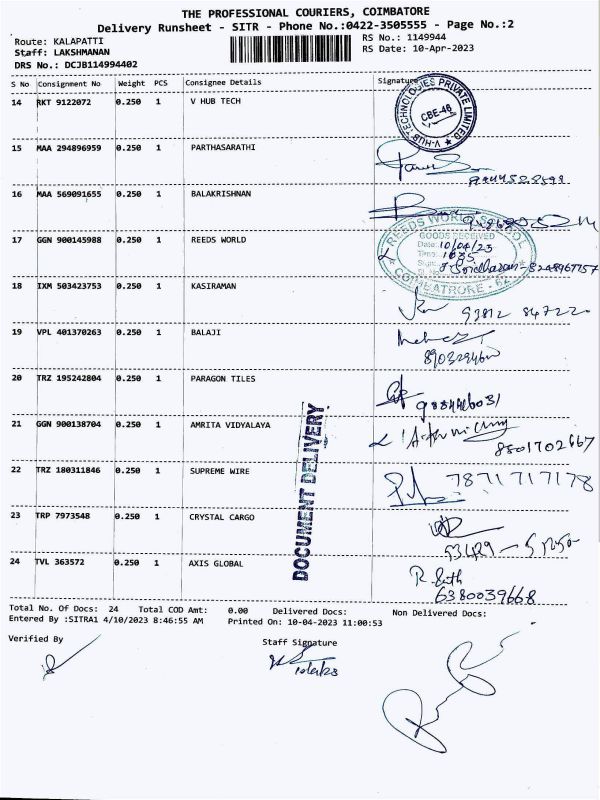 THE PROFESSIONAL COURIERS, COIMBATORE
Delivery Runsheet - SITR - Phone No.:0422-3505555 - Page No.:2
Route: KALAPATTI
RS No.: 1149944
Staff: LAKSHMANAN
RS Date: 10-Apr-2023
DRS No.: DCJB114994402
S No Consignment No Weight PCS Consignee Details Signature
14 RKT 9122072 0.250 1 V HUB TECH
V-HUB TECHNOLOGIES PRIVATE LIMITED
CBE-48
15 MAA 294896959 0.250 1 PARTHASARATHI
16 MAA 569091655 0.250 1 BALAKRISHNAN
17 GGN 900145988 0.250 1 REEDS WORLD
REEDS WORLD SCHOOL
GOODS RECEIVED
Date: 10/04/23
Time: 1035
Sign:
COIMBATORE - 62
18 IXM 503423753 0.250 1 KASIRAMAN
93812 84722
19 VPL 401370263 0.250 1 BALAJI
20 TRZ 195242804 0.250 1 PARAGON TILES
21 GGN 900138704 0.250 1 AMRITA VIDYALAYA
8801702667
22 TRZ 180311846 0.250 1 SUPREME WIRE
7871717178
23 TRP 7973548 0.250 1 CRYSTAL CARGO
24 TVL 363572 0.250 1 AXIS GLOBAL
6380039668
DOCUMENT DELIVERY
Total No. Of Docs: 24 Total COD Amt: 0.00 Delivered Docs: Non Delivered Docs:
Entered By :SITRA1 4/10/2023 8:46:55 AM Printed On: 10-04-2023 11:00:53
Verified By
Staff Signature